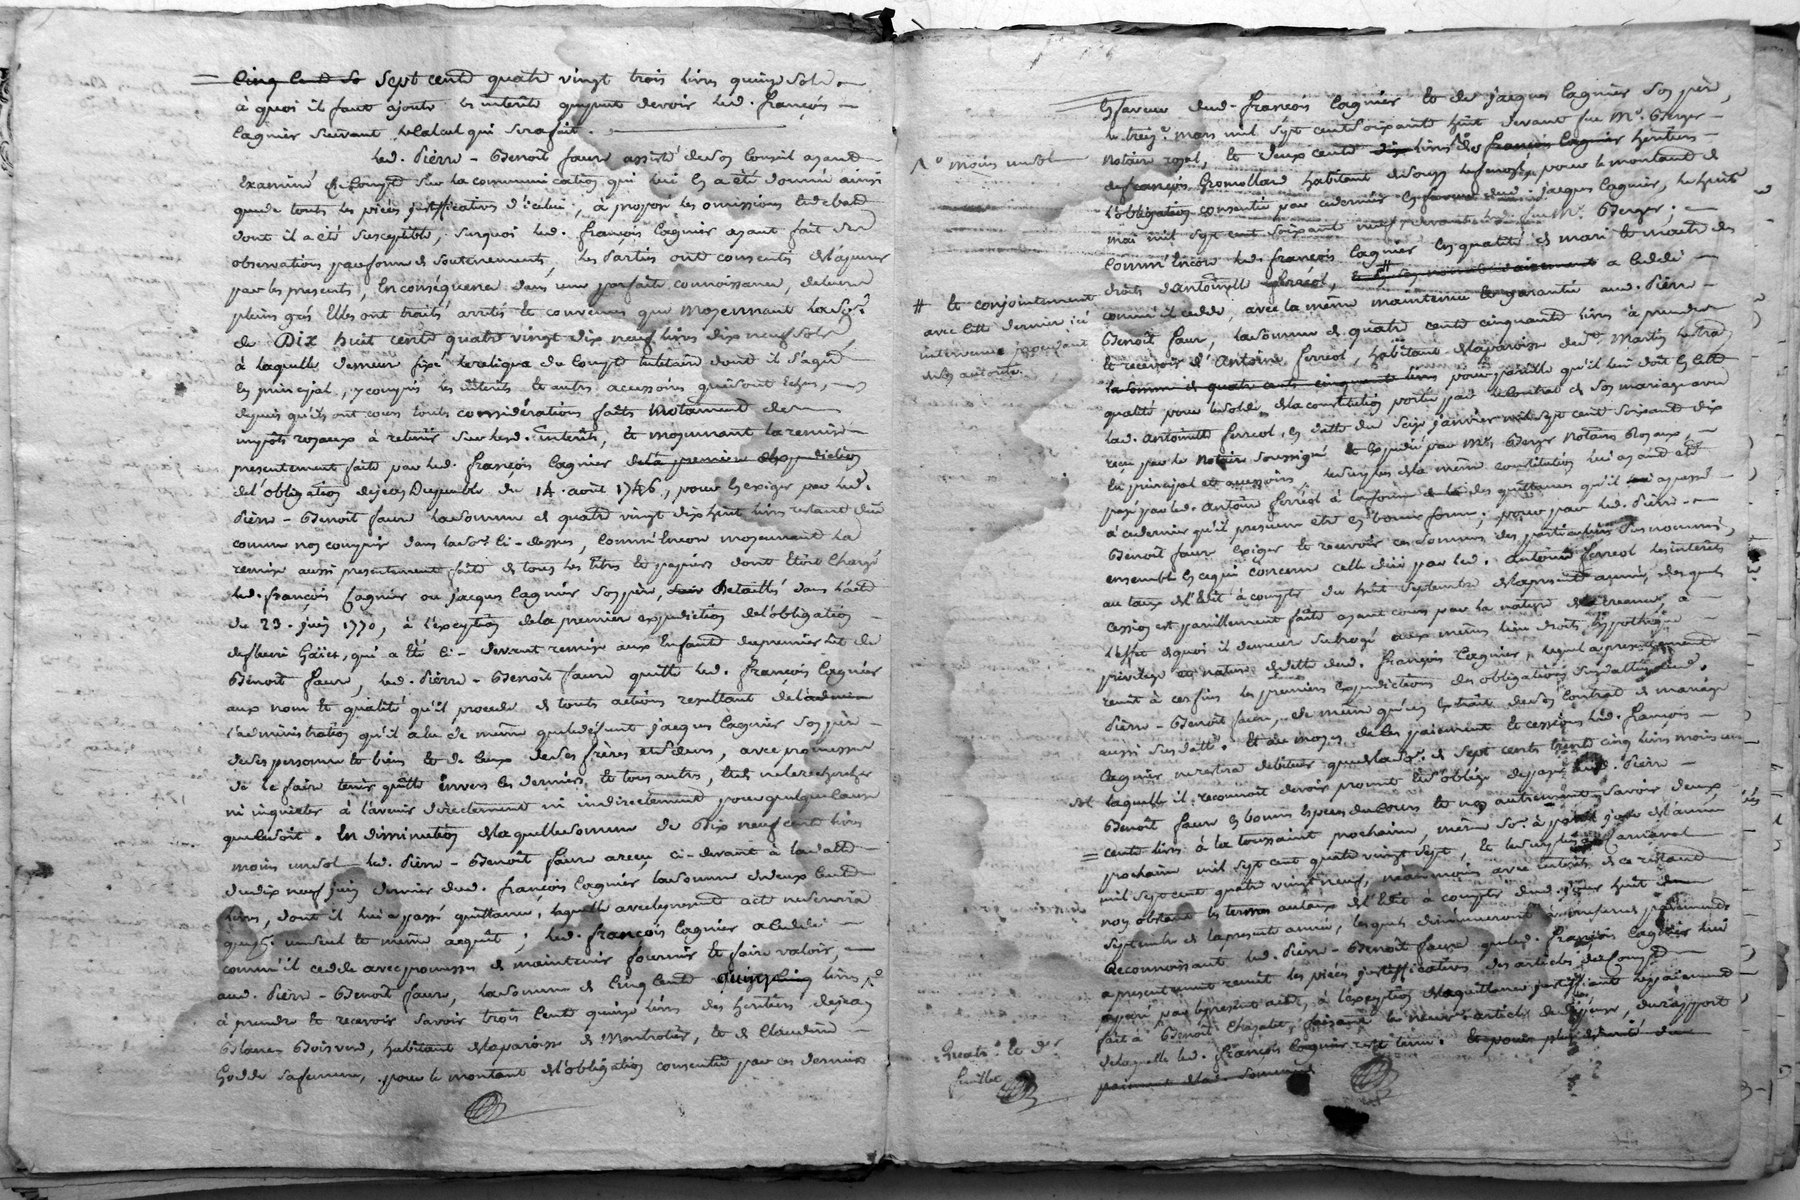 Cinq Cents so sept cents quatre vingt trois livres quinze sols
à quoi il faut ajouter les interets que peut devoir led. françois
Cagnier suivant le Calcul qui sera fait.
Led. Pierre-Benoît faure assisté de son Conseil ayant
Examiné Ce Compte sur la communication qui lui en a été donnée ainsi
que de touts les pièces justificatives d'icelui, à proposé les omissions et debats
dont il a été susceptible, surquoi led. françois Cagnier ayant fait des
observations par forme de soutenements, les Parties ont consenti
par les presents, En conséquence dans une parfaite connoissance, de leur
plein gré Elles ont traité, arrêté et convenu que moyennant la so.e
de Dix huit cents quatre vingt dix neuf livres dix neuf sols
à laquelle demeure fixé le reliqua du compte tutelaire dont il s'agit
En principal, y compris les interets et autres accessoires
depuis qu'ils ont cours touts considérations faites Notament des
impôts royaux à retenir sur lesd. interêts, et moyennant la remise
presentement faite par led. françois Cagnier de la premiere expedition
de l'obligation de jean Duperble du 14. août 1746, pour En exiger par led.
Pierre-Benoît faure la somme de quatre vingt dix huit livres restant due
comme non comprise dans la so.e Ci-dessus, Comm'Encore moyennant la
remise aussi presentement faite de tous les titres et papiers dont Etoit Chargé
led. françois Cagnier ou jacques Cagnier son père, detaillés dans l'acte
du 23. juin 1770, à l'exception de la premiere expedition de l'obligation
qui a été Ci-devant remise aux Enfants du premier lit de
Benoît faure, led. Pierre-Benoît faure quitte led. françois Cagnier
aux nom et qualité qu'il procede de touts actions resultant de l'admin
l'administration qu'il a eu de même que le défunt jacques Cagnier son père
de ses personne et biens et de Ceux de ses frères et soeurs, avec promesse
de le faire tenir quitte Envers Ces derniers et tous autres, et de ne le rechercher
ni inquieter à l'avenir directement ni indirectement pour quelque cause
que ce soit. En diminution de laquelle somme de Dix neuf cents livres
moins un sol led. Pierre-Benoît faure a reçu ci-devant à la date
du dix neuf juin dernier dud. françois Cagnier la somme de deux cents
livres, dont il lui a passé quittance, laquelle avec le present acte ne servira
que d'un seul et même acquit; led. françois Cagnier a Cedé
comm'il cede avec promesse de maintenir fournir et faire valoir,
aud. Pierre-Benoît faure, la somme de Cinq Cents quinze livres
à prendre et recevoir savoir trois Cents quinze livres des heritiers de jean
habitant de la paroisse de Montrotier, et de Claudine
sa femme, pour le montant de l'obligation consentie par ces derniers
1.o moins un sol
# et conjointement
avec cette derniere ici
intervenue
dud. antoine.
En faveur dud. françois Cagnier et de jacques Cagnier son père,
le treiz.e mars mil sept cent soixante huit devant feu M.e Berger
notaire royal, et deux cents dix livres des françois Cagnier heritiers
de françois Gromollard habitant pour le montant de
l'obligation consentie par ce dernier En faveur dud. jacques Cagnier, le huit
mai mil sept cent soixante neuf, devant led. feu M.e Berger;
Comm'Encore led. françois Cagnier En qualité de mari et maitre des
droits d'antoinette ferréol, a Cedé
comm'il cede, avec la même maintenue et garantie aud. Pierre
Benoît faure, la somme de quatre cents cinquante livres à prendre
et recevoir d'Antoine ferreol, habitant de la paroisse de S.t Martin
la somme de quatre cents cinquante livres pour pareille qu'il lui doit En cette
qualité pour le solde de la constitution portée par le Contrat de son mariage avec
lad. antoinette ferreol, En datte du seize janvier mil sept cent soixante dix
reçu par le Notaire soussigné et Expedié par M.e Berger Notaires Royaux,
En principal et accessoirs, le surplus de la même constitution lui ayant été
payé par led. antoine ferréol à la forme des quittances qu'il a passé
à ce dernier; pour par led. Pierre
Benoît faure Exiger et recevoir ces sommes des particuliers susnommés,
ensemble En ce qui Concerne celle due par led. Antoine ferreol les interêts
au taux de l'Edit à compter du huit septembre de la presente année, desquels
Cession est pareillement faite ayant cours par la nature de la creance à
l'effet de quoi il demeure subrogé aux mêmes lieu droits, hypothèque
privilege et nature de dette dud. françois Cagnier, lequel a presentement
remit à ces fins les premiers expeditions des obligations susdattées aud.
Pierre-Benoît faure, de même qu'un Extrait de son Contrat de mariage
aussi susdatté. Et au moyen de Ces paiement et cessions led. françois
Cagnier ne restera debiteur que de la so.e de sept cents trente cinq livres moins un
sol laquelle il reconnoit devoir promet et s'oblige de payer aud. Pierre
Benoît faure En bonnes Especes du Cours et non autrement, savoir deux
Cents livres à la toussaint prochaine, même so.e à pareil jour de l'année
prochaine mil sept cent quatre vingt sept, et le surplus au Carnaval
mil sept cent quatre vingt neuf, neanmoins avec interêts de ce restant
non obstant les termes au taux de l'Edit à compter dud. jour huit
septembre de la presente année, lesquels diminueront à mesure des paiements
Reconnoissant led. Pierre-Benoît faure que led. françois Cagnier lui
a presentement remit les pièces justificatives des articles de Compte
à l'exception de la quittance justifiant le paiement
fait à Benoît Chazalet, faisant le neuv.e article de depense, du rapport
de laquelle led. françois Cagnier reste tenu. Et pour plus sureté du
paiement de lad. somme
feuillet